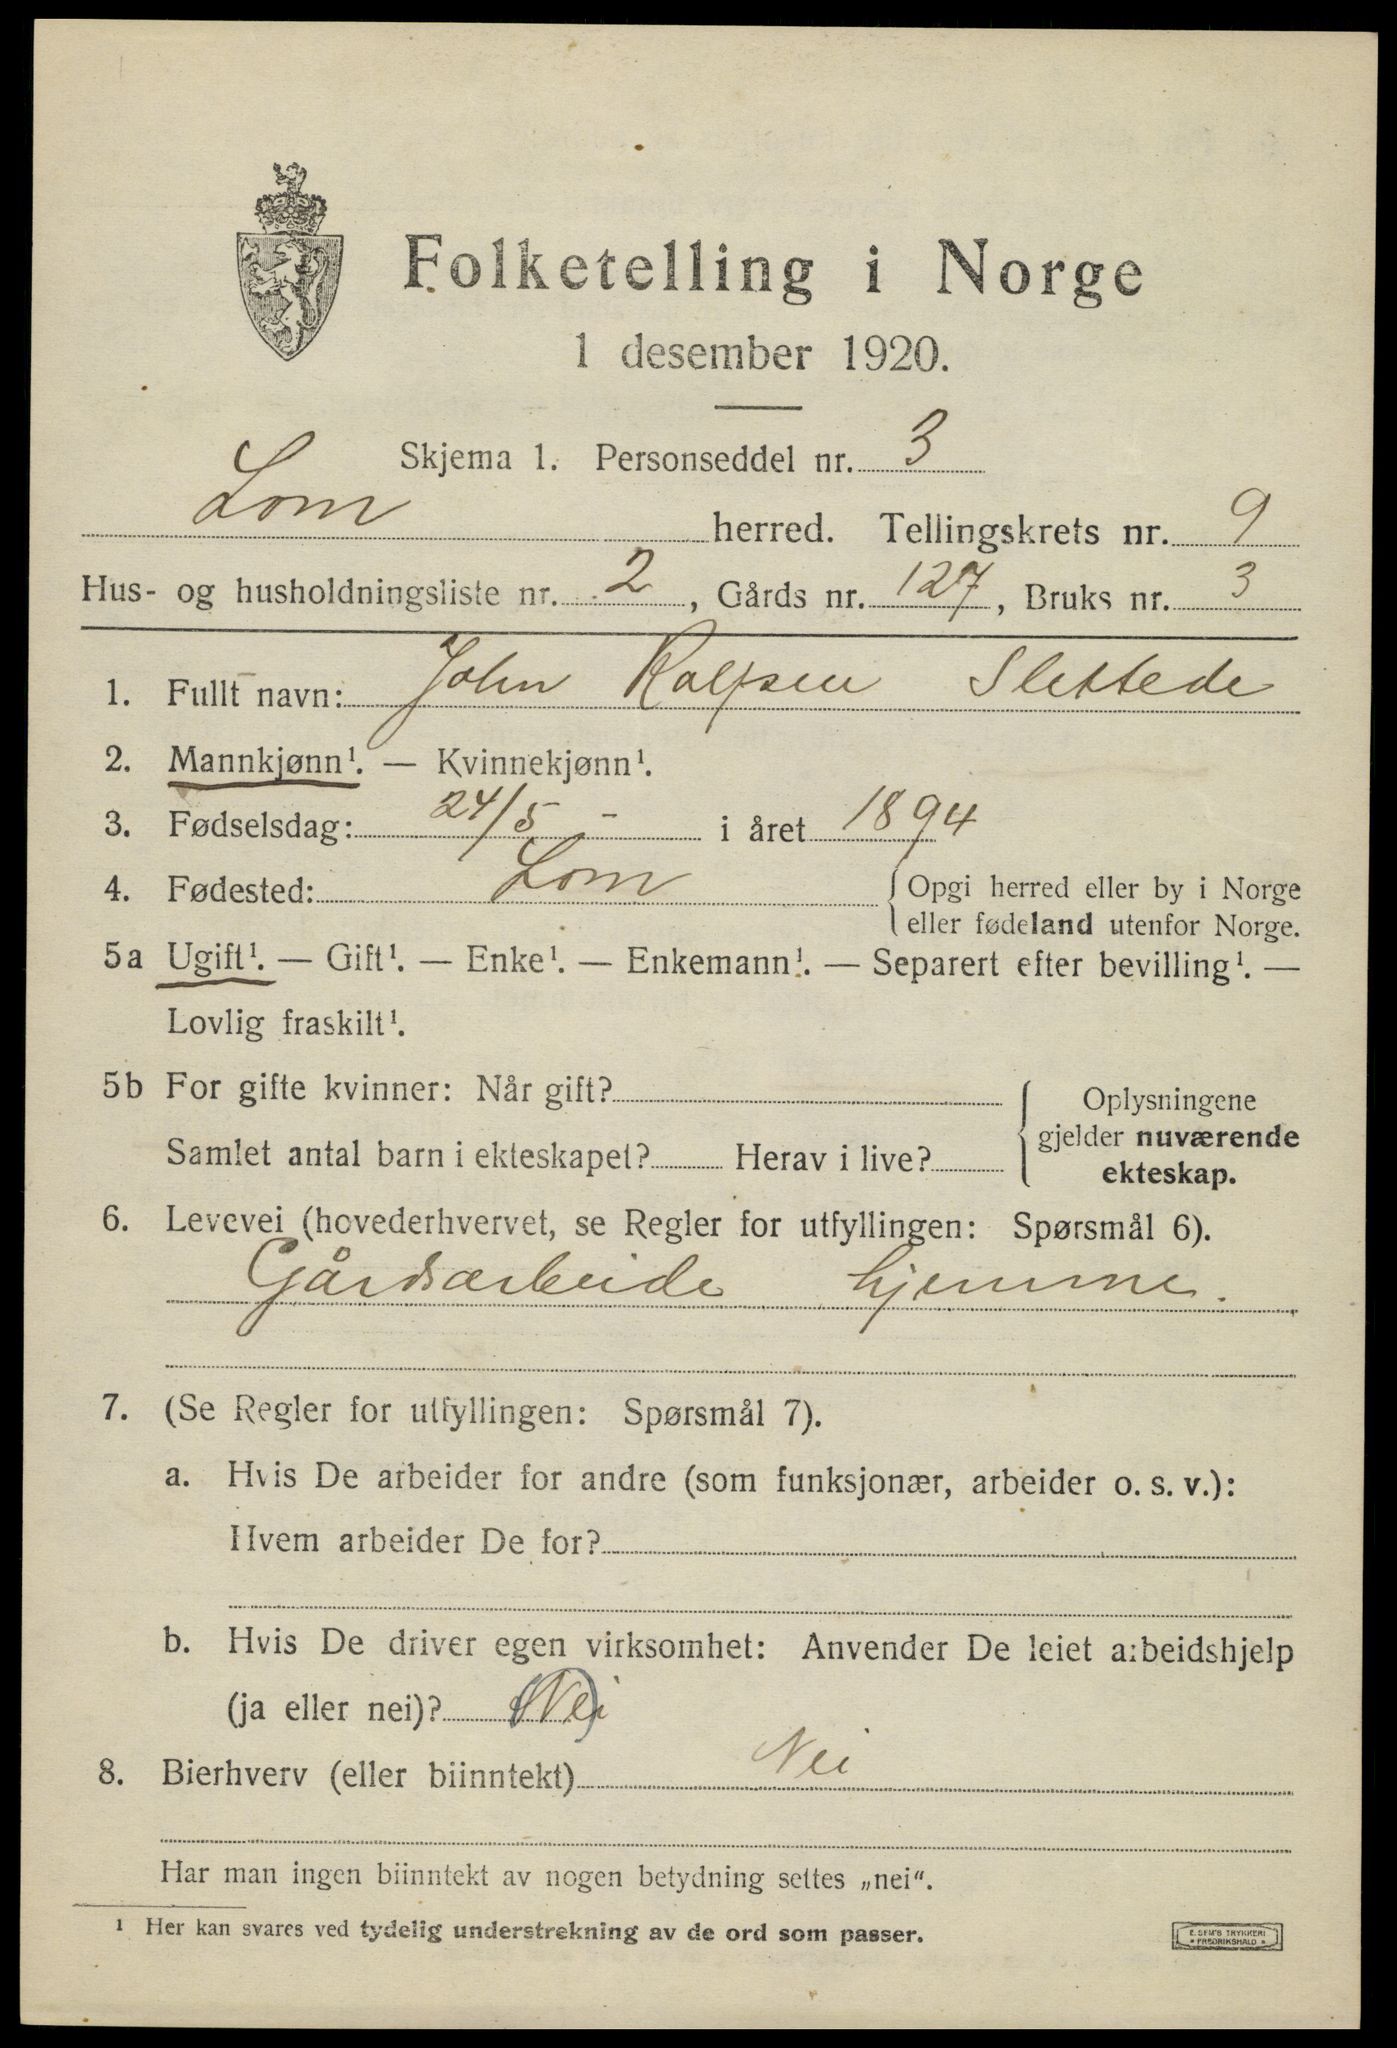 Folketelling i Norge
1 desember 1920.
Skjema 1. Personseddel nr. 3
Lom herred. Tellingskrets nr. 9
Hus- og husholdningsliste nr. 2, Gårds nr. 127, Bruks nr. 3
1. Fullt navn: John Rolfsen Slettede
2. Mannkjønn¹. — Kvinnekjønn¹.
3. Fødselsdag: 24/5 - i året 1894
4. Fødested: Lom { Opgi herred eller by i Norge
eller fødeland utenfor Norge.
5a Ugift¹. — Gift¹. — Enke¹. — Enkemann¹. — Separert efter bevilling¹. —
Lovlig fraskilt¹.
5b For gifte kvinner: Når gift? { Oplysningene
gjelder nuværende
Samlet antal barn i ekteskapet? Herav i live?
ekteskap.
6. Levevei (hovederhvervet, se Regler for utfyllingen: Spørsmål 6).
Gårdsarbeide hjemme.
7. (Se Regler for utfyllingen: Spørsmål 7).
a. Hvis De arbeider for andre (som funksjonær, arbeider o. s. v.):
Hvem arbeider De for?
b. Hvis De driver egen virksomhet: Anvender De leiet arbeidshjelp
(ja eller nei)? (Nei)
8. Bierhverv (eller biinntekt) Nei
Har man ingen biinntekt av nogen betydning settes „nei“.
¹ Her kan svares ved tydelig understrekning av de ord som passer.
E. SEM'S TRYKKERI
* FREDRIKSHALD *